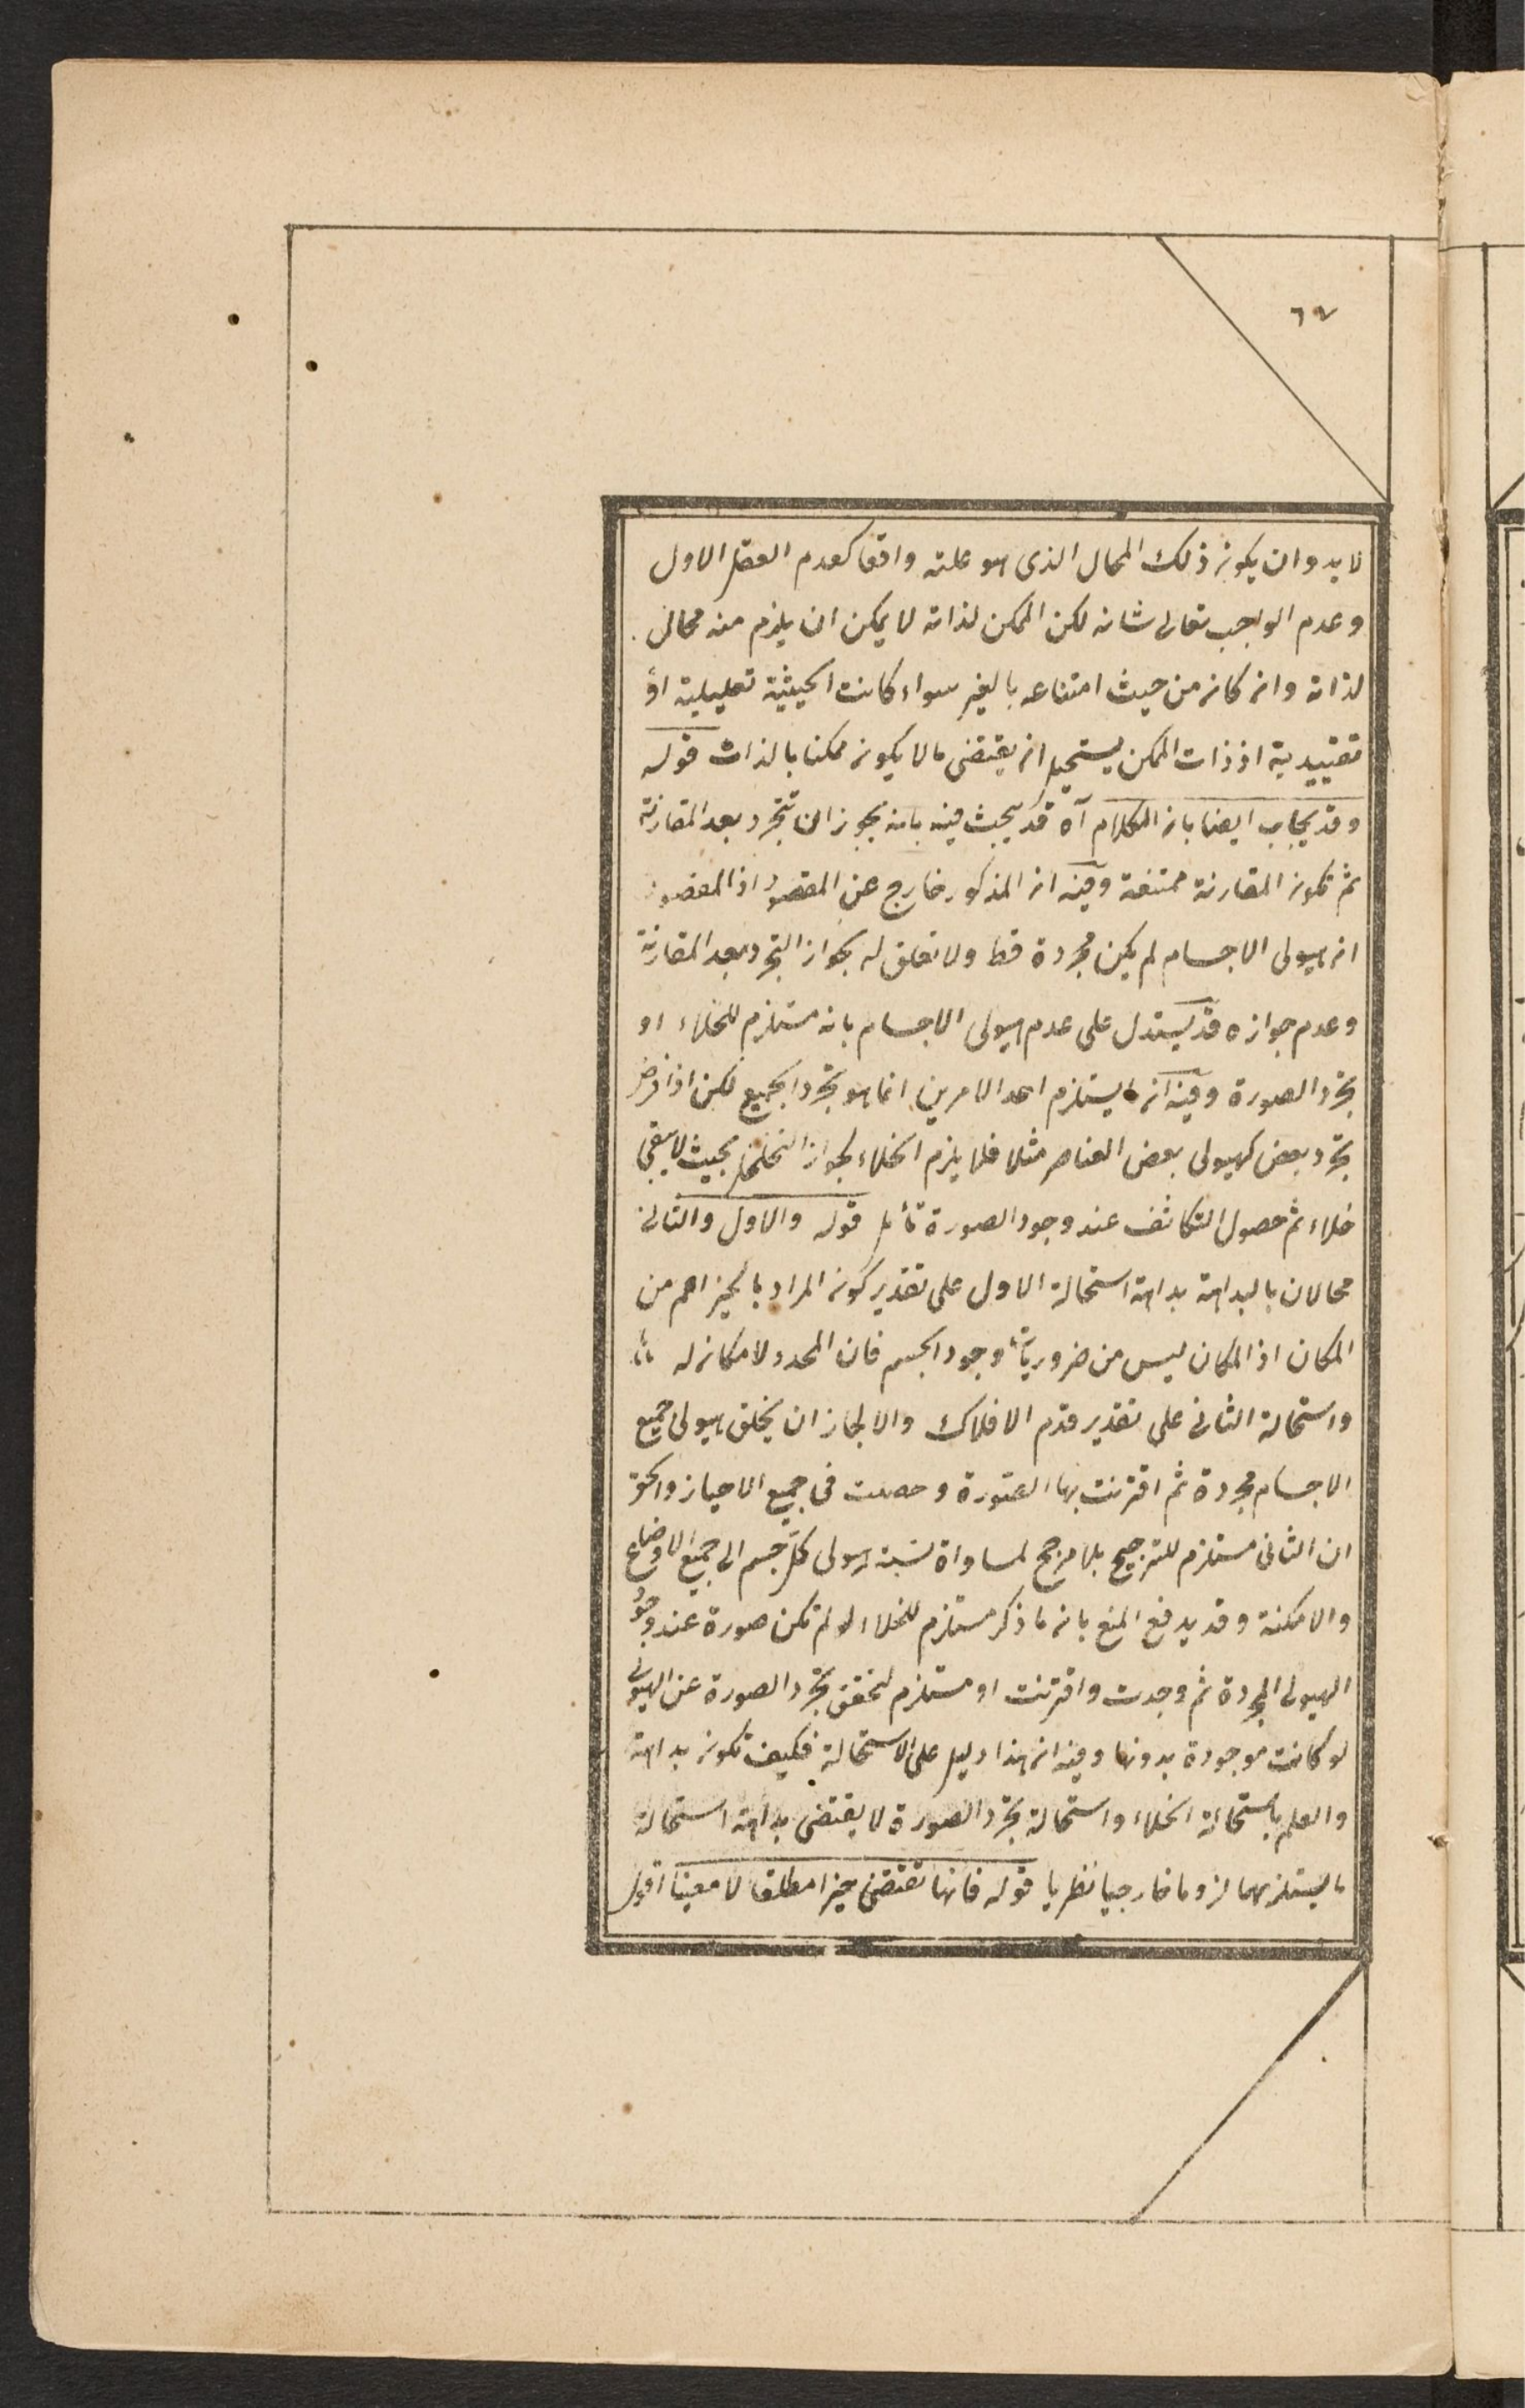 ٦٧
لا بد وان يكون ذلك المحال الذى هو علته واقعا كعدم العقل الاول
وعدم الواجب تعالى شانه لكن الممكن لذاته لا يمكن ان يلزم منه محال
لذاته وان كان من حيث امتناعه بالغير سواء كانت الحيثية تعليلية او
تقييدية اذ ذات الممكن يستحيل ان يقتضى ما لا يكون ممكنا بالذات قوله
وقد يجاب ايضا بان الكلام آه قد يبحث فيه بانه يجوز ان تتجرد بعد المقارنة
ثم تكون المقارنة ممتنعة وفيه ان المذكور خارج عن المقصود اذ المقصود
ان هيولى الاجسام لم يكن مجردة قط ولا تعلق له بجواز التجرد بعد المقارنة
وعدم جوازه قد يستدل على عدم هيولى الاجسام بانه مستلزم للخلاء او
تجرد الصورة وفيه ان ما يستلزم احد الامرين انما هو تجرد الجميع لكن اذا فرض
تجرد بعض كهيولى بعض العناصر مثلا فلا يلزم الخلاء لجواز التخلخل بحيث لا يبقى
خلاء ثم حصول التكاثف عند وجود الصورة تأمل قوله والاول والثانى
محالان بالبداهة بداهة استحالة الاول على تقدير كون المراد بالحيز اعم من
المكان اذ المكان ليس من ضروريات وجود الجسم فان المحدد لا مكان له
واستحالة الثانى على تقدير قدم الافلاك والا لجاز ان يخلق هيولى جميع
الاجسام مجردة ثم اقترنت بها الصورة وحصلت فى جميع الاحياز والحق
ان الثانى مستلزم للترجيح بلا مرجح لمساواة نسبة هيولى كل جسم الى جميع الاوضاع
والامكنة وقد يدفع المنع بان ما ذكر مستلزم للخلاء لو لم تكن صورة عند وجود
الهيولى المجردة ثم وجدت واقترنت او مستلزم لتحقق تجرد الصورة عن الهيولى
لو كانت موجودة بدونها وفيه ان هذا دليل على الاستحالة فكيف تكون بداهة
والعلم باستحالة الخلاء واستحالة تجرد الصورة لا يقتضى بداهة استحالة
ما يستلزمهما لزوما خارجيا نظريا قوله فانها تقتضى حيزا مطلقا لا معينا اقول